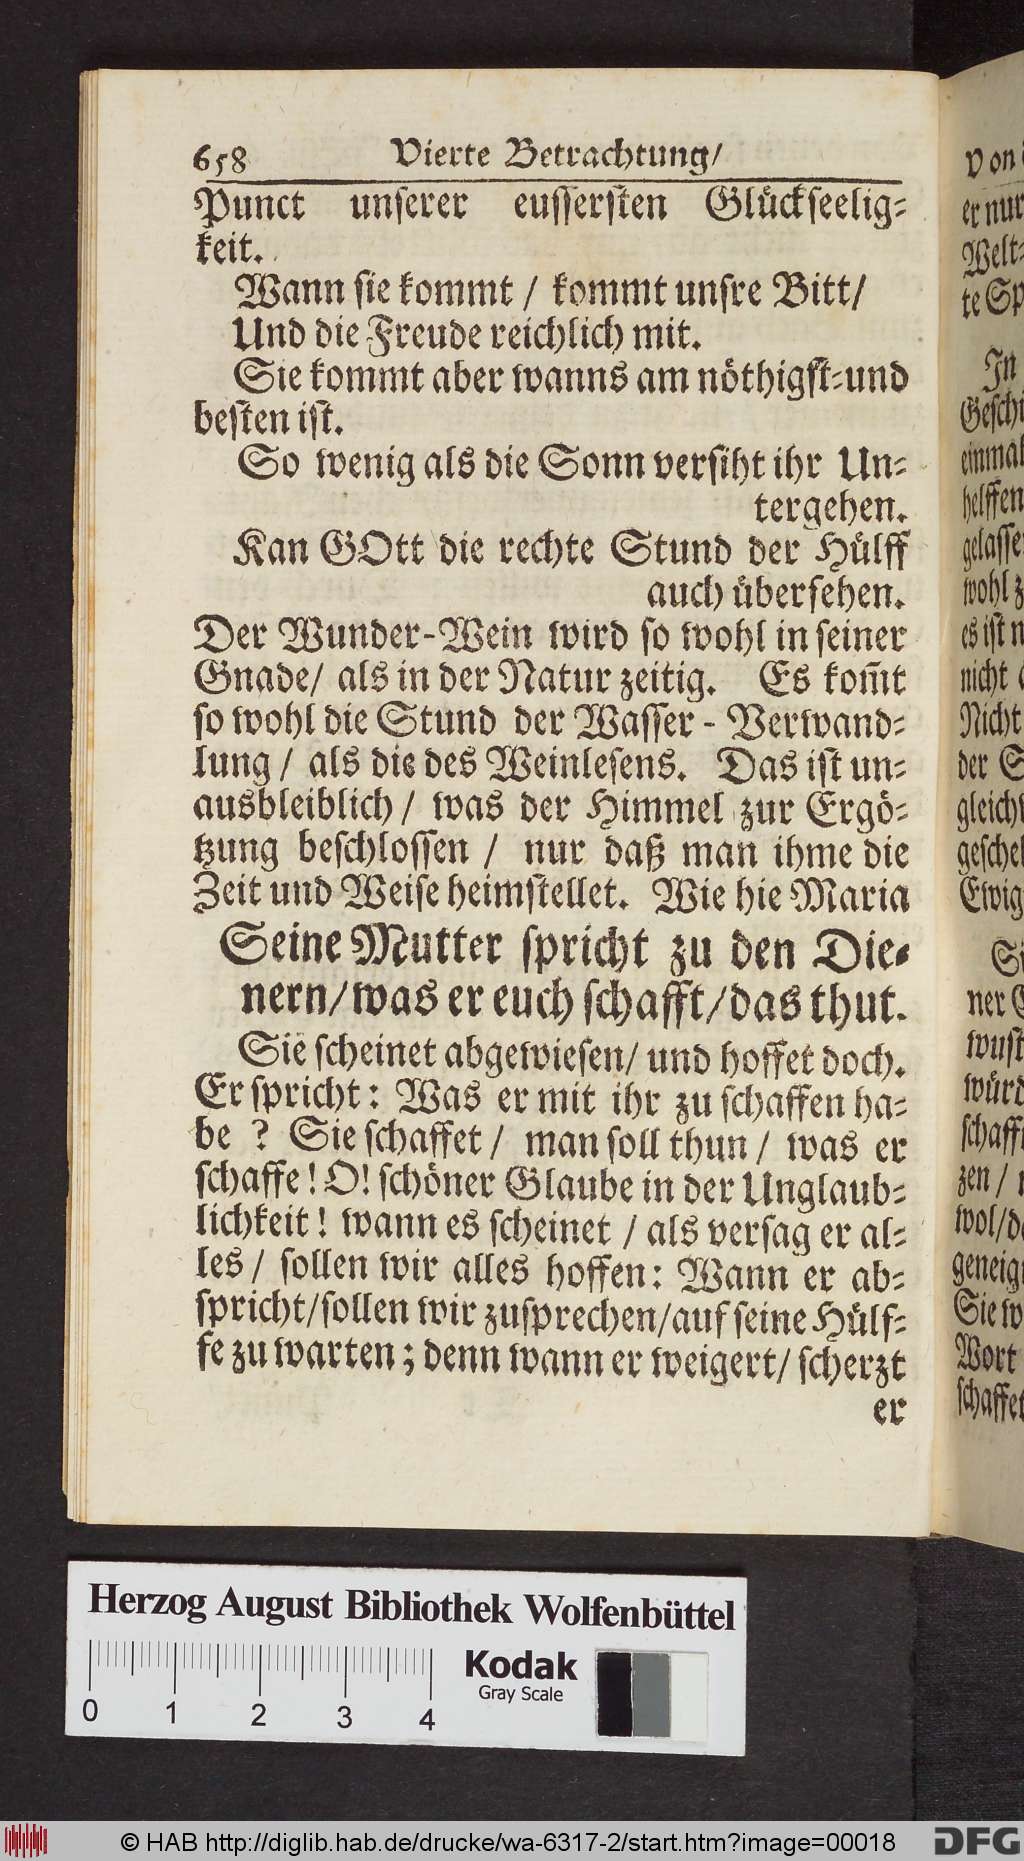 658 Vierte Betrachtung/
Punct unserer eussersten Glückseelig-
keit.
Wann sie kommt / kommt unsre Bitt/
Und die Freude reichlich mit.
Sie kommt aber wanns am nöthigst-und
besten ist.
So wenig als die Sonn versiht ihr Un-
tergehen.
Kan GOtt die rechte Stund der Hülff
auch übersehen.
Der Wunder-Wein wird so wohl in seiner
Gnade/ als in der Natur zeitig. Es kom̃t
so wohl die Stund der Wasser - Verwand-
lung / als die des Weinlesens. Das ist un-
ausbleiblich / was der Himmel zur Ergö-
tzung beschlossen / nur daß man ihme die
Zeit und Weise heimstellet. Wie hie Maria
Seine Mutter spricht zu den Die-
nern/was er euch schafft/das thut.
Sie scheinet abgewiesen/ und hoffet doch.
Er spricht: Was er mit ihr zu schaffen ha-
be ? Sie schaffet / man soll thun / was er
schaffe! O! schöner Glaube in der Unglaub-
lichkeit! wann es scheinet / als versag er al-
les / sollen wir alles hoffen: Wann er ab-
spricht/sollen wir zusprechen/auf seine Hülf-
fe zu warten; denn wann er weigert/ scherzt
er
von
er nur
Welt-
te Sp
In
Geschi
einmal
helffen
gelasse
wohl z
es ist n
nicht
Nicht
der S
gleich
geschе
Ewig
Si
ner
wust
würd
schaff
zen /
wol/d
geneig
Sie w
Wort
schaffet
Herzog August Bibliothek Wolfenbüttel
Kodak
Gray Scale
0 1 2 3 4
© HAB http://diglib.hab.de/drucke/wa-6317-2/start.htm?image=00018
DFG